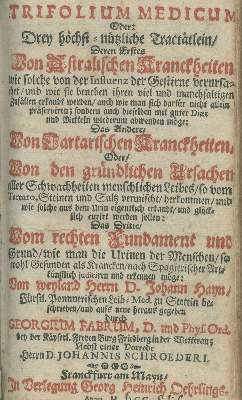 TRIFOLIUM MEDICUM
Oder:
Drey höchst-nützliche Tractätlein/
Deren Erstes
Von Astralischen Kranckheiten
wie solche von der Influenz der Gestirne verursa-
chet/ und wie sie beneben ihren viel und mannichfaltigen
Zufällen erkandt werden/ auch wie man sich darfür nicht allein
præserviren; sondern auch dieselben mit guter Diæt
und Mitteln wiederum abwenden möge:
Das Andere/
Von Tartarischen Kranckheiten,
Oder/
Von den gründlichen Ursachen
aller Schwachheiten menschlichen Leibes/ so vom
Tartaro, Steinen und Saltz vermischt/ herkommen/ und
wie solche aus dem Urin eigentlich erkandt/ und glück-
lich curirt werden sollen:
Das Dritte/
Vom rechten Fundament und
Grund/ wie man die Urinen der Menschen/ so
wohl Gesunden als Krancken/ nach Spagirischer Art/
künstlich judiciren und erkennen möge:
Von weyland Herrn D. Johann Hayn,
Fürstl. Pommerischen Leib-Med. zu Stettin be-
schrieben/ und aufs neue heraus gegeben
Durch
GEORGIUM FABRUM, D. und Phys. Ord.
bey der Käyserl. Freyen Burg Friedberg in der Wetterau;
Nebst einer Vorrede
Herrn D. JOHANNIS SCHROEDERI.
Franckfurt am Mayn/
In Verlegung Georg Heinrich Oehrlings.